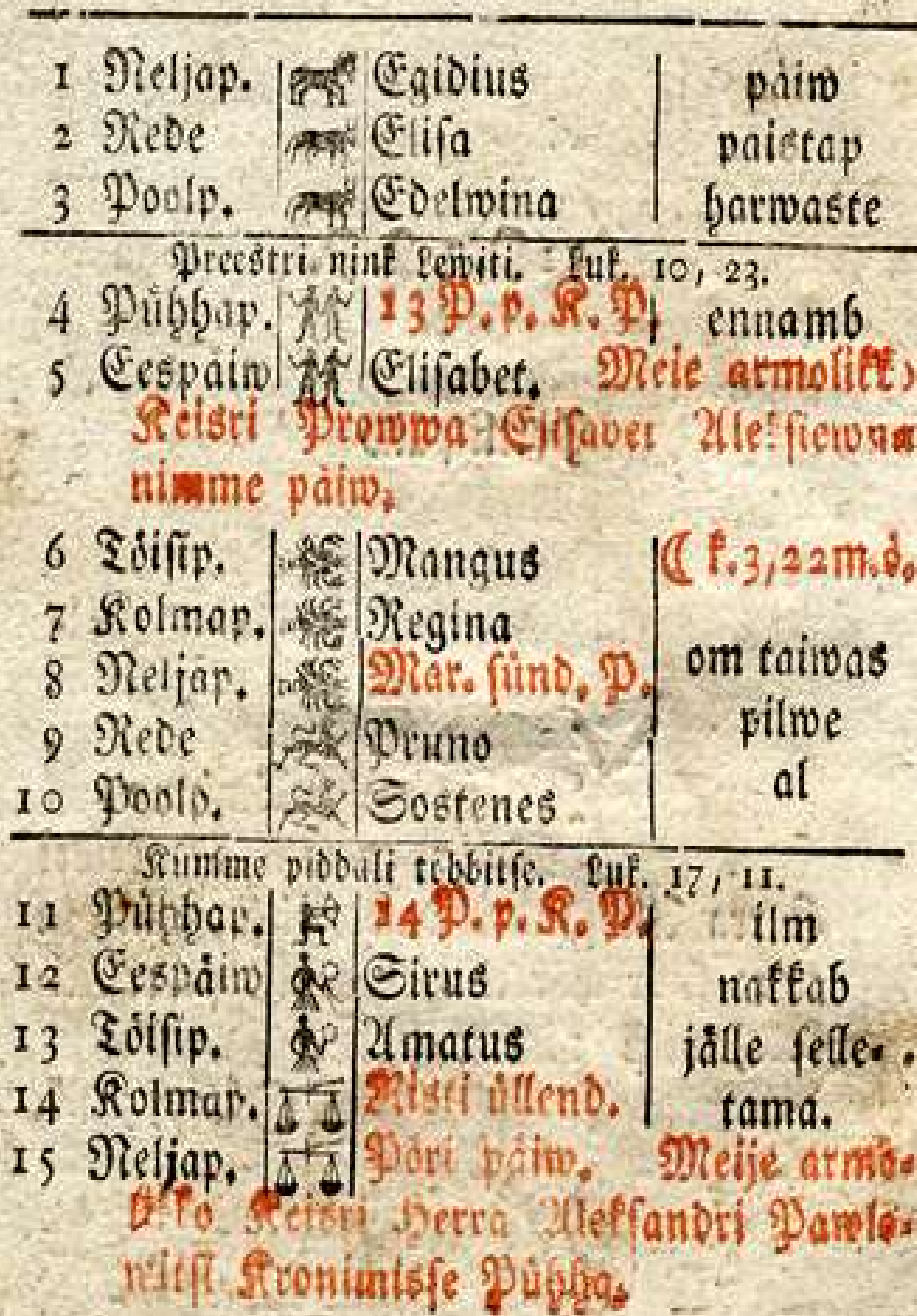 1 Neljap. Egidius päiw
2 Rede Elisa paistap
3 Poolp. Edelwina harwaste
Preestri nink Lewiti. Luk. 10, 23.
4 Pühhap. 13 P. p. K. P. ennamb
5 Eespäiw Elisabet. Meie armolikk
Keisri Prowwa Elisabet Aleksiewna
nimme päiw.
6 Töisip. Mangus ☾ k. 3, 22 m. ö.
7 Kolmap. Regina
8 Neljap. Mar. sünd. P. om taiwas
9 Rede Pruno pilwe
10 Poolp. Sostenes al
Kümme piddali tõbbitse. Luk. 17, 11.
11 Pühhap. 14 P. p. K. P. ilm
12 Eespäiw Sirus nakkab
13 Töisip. Amatus jälle selle-
14 Kolmap. Risti üllend. tama.
15 Neljap. Pöri päiw. Meije armo-
likko Keisri Herra Aleksandri Pawlo-
witsi Kronimisse Pühha.